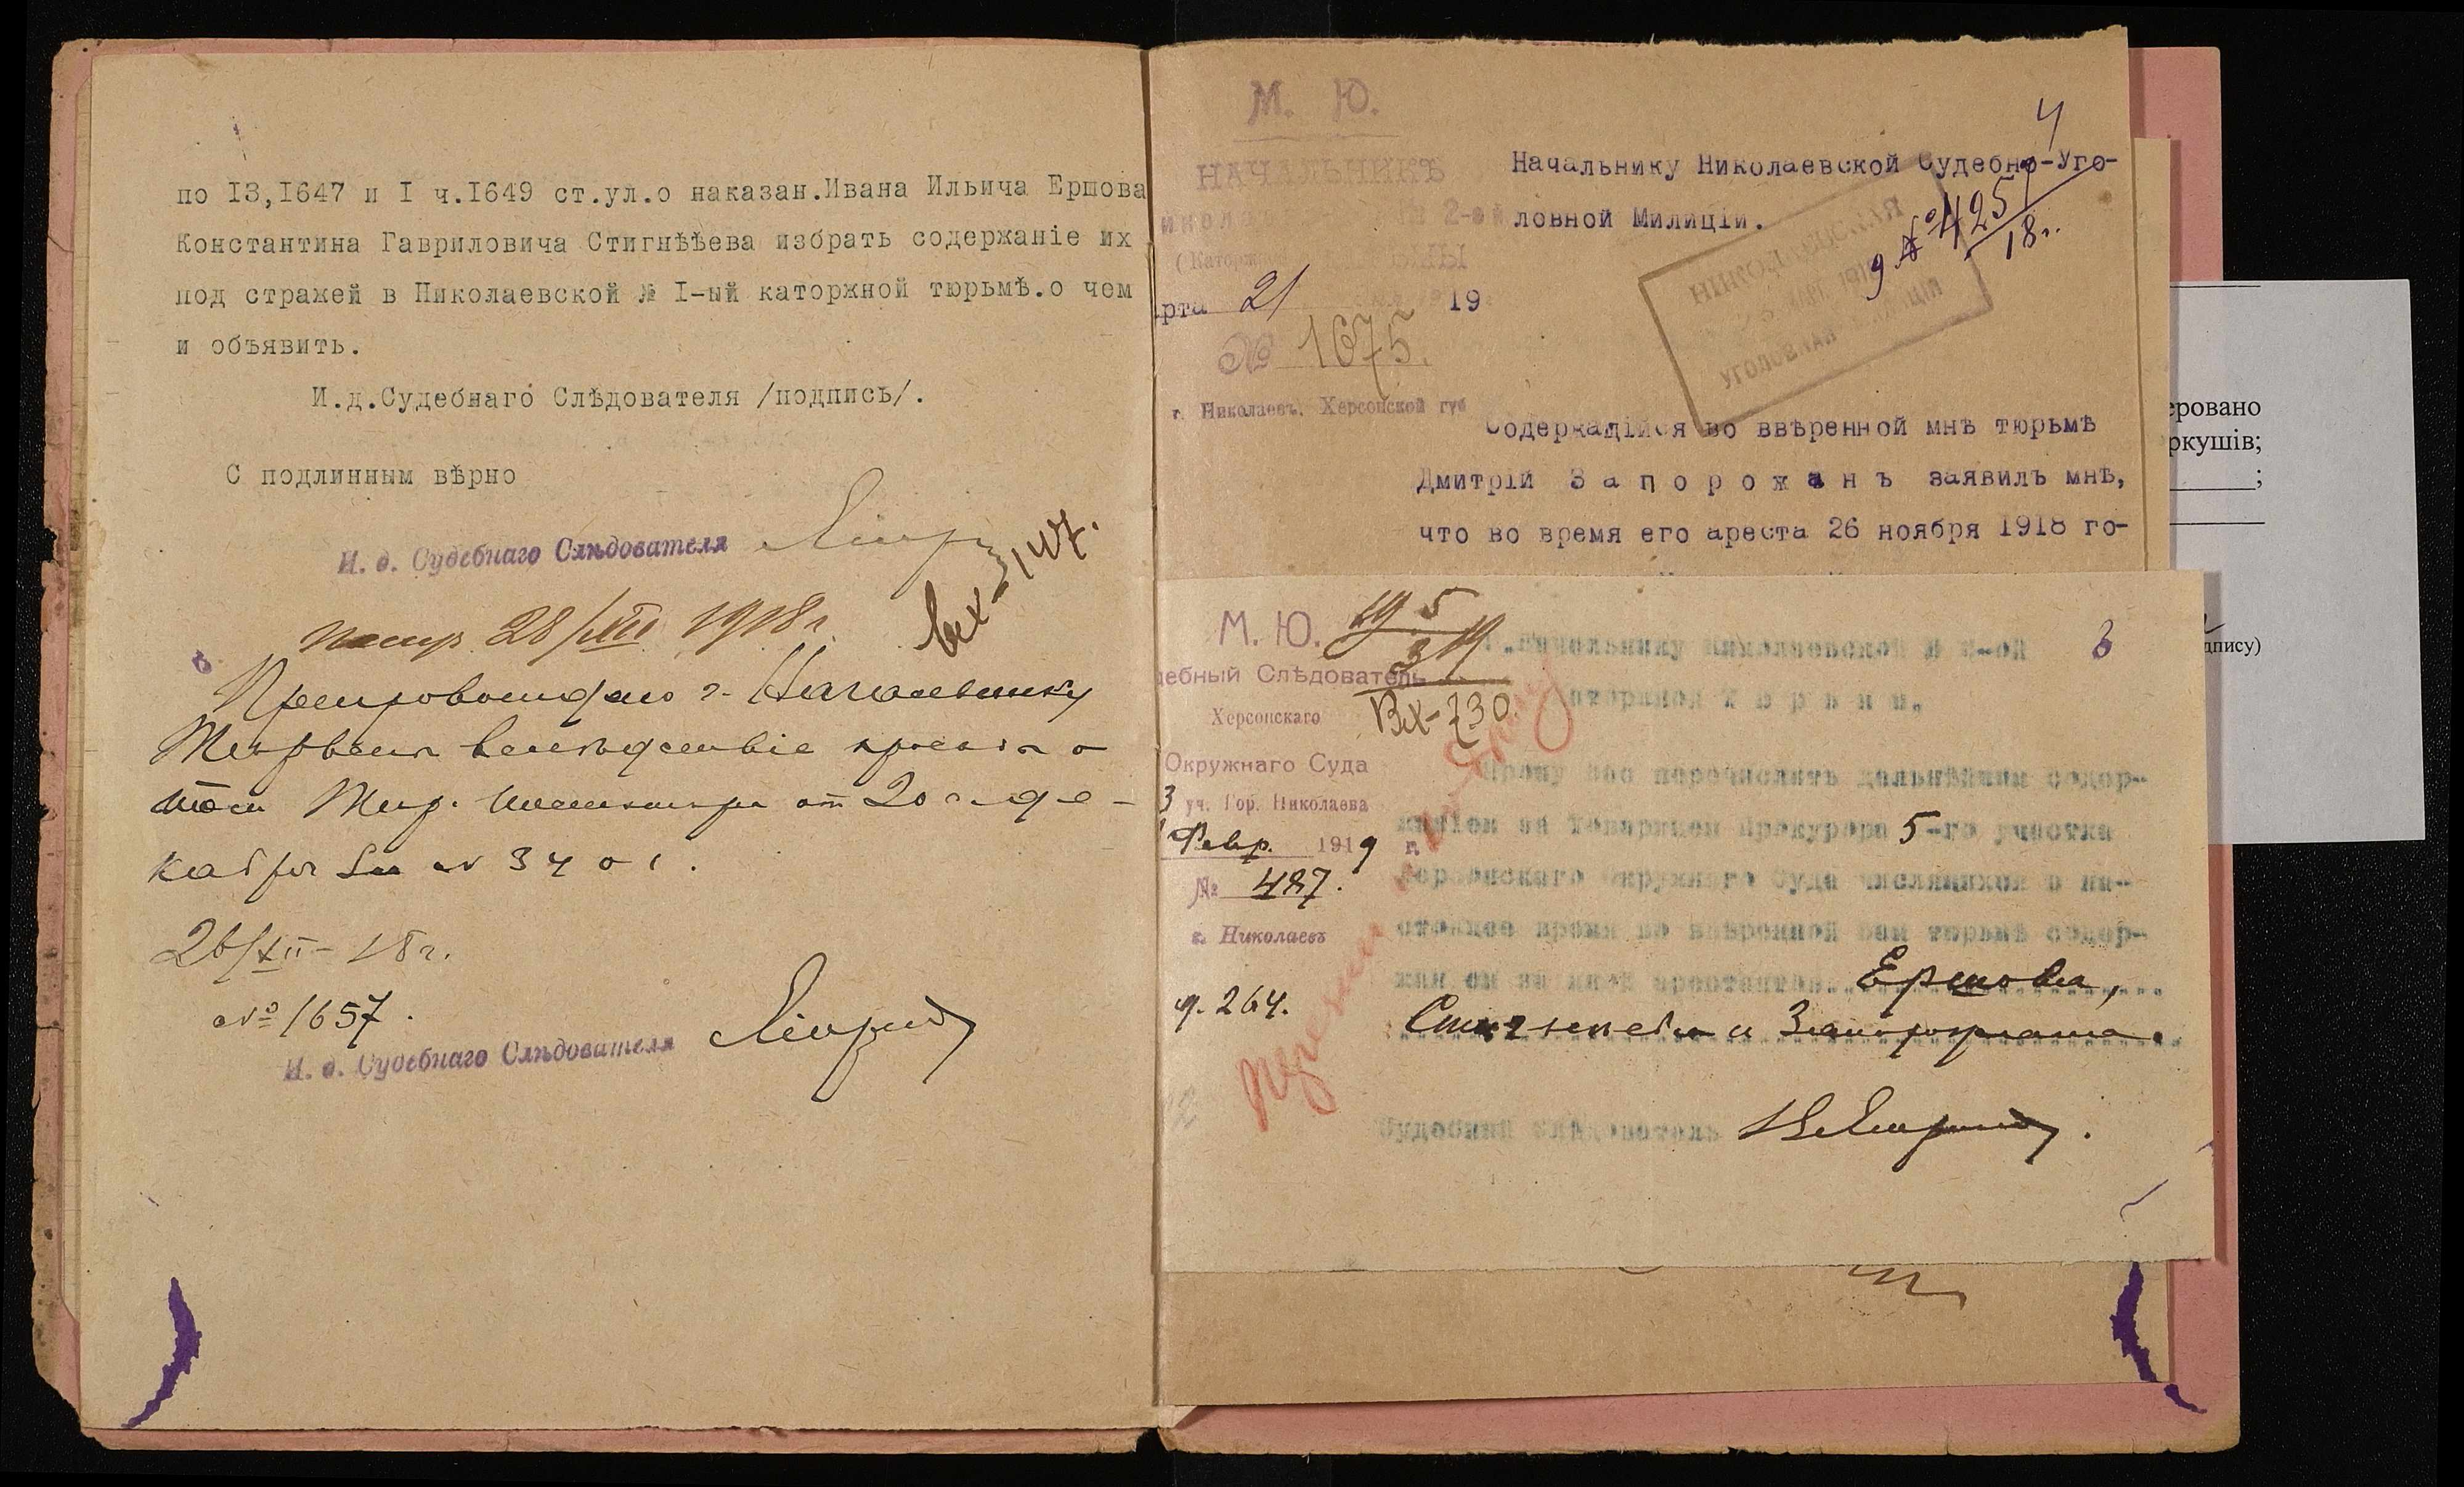 по 13,1647 и I ч.1649 ст.ул.о наказан.Ивана Ильича Ершова
Константина Гавриловича Стигнѣѣева избрать содержаніе их
под стражей в Николаевской № I-ый каторжной тюрьмѣ.о чем
и объявить.
И.д.Судебнаго Слѣдователя /подпись/.
С подлинным вѣрно
И. д. Судебнаго Слѣдователя
Вх-3147.
28/XII 1918 г.
Препровождаю г. Начальнику
Тюрьмы вслѣдствіе
Тюр. от 20 с. де-
кабря за № 3401.
26/XII-18 г.
№ 1657.
И. д. Судебнаго Слѣдователя
4
М. Ю.
НАЧАЛЬНИКЪ
2-ой
рта 21 19
№ 1675.
г. Николаевъ, Херсонской губ
Начальнику Николаевской Судебно-Уго-
ловной Милиціи.
№ 425
18 г.
УГОЛОВНАЯ
Содержащійся во ввѣренной мнѣ тюрьмѣ
Дмитрій З а п о р о ж а н ъ заявилъ мнѣ,
что во время его ареста 26 ноября 1918 го-
М. Ю.
19 5/3 19
Вх-730.
дебный Слѣдователь
Херсонскаго
Окружнаго Суда
3 уч. Гор. Николаева
Февр. 1919 г.
№ 487.
г. Николаевъ
д. 264.
3
Г.Начальнику Николаевской № -ой
каторжной т ю р ь м ы.
Прошу вас перечислить дальнѣйшим содер-
жаніем за Товарищем Прокурора 5-го участка
Херсонскаго Окружнаго Суда числящихся в на-
стоящее время во ввѣренной вам тюрьмѣ содер-
жанiем за мной арестантов Ершова,
Стигнеева и Запорожана.
Судебный Слѣдователь
еровано
ркушів;
;
дпису)